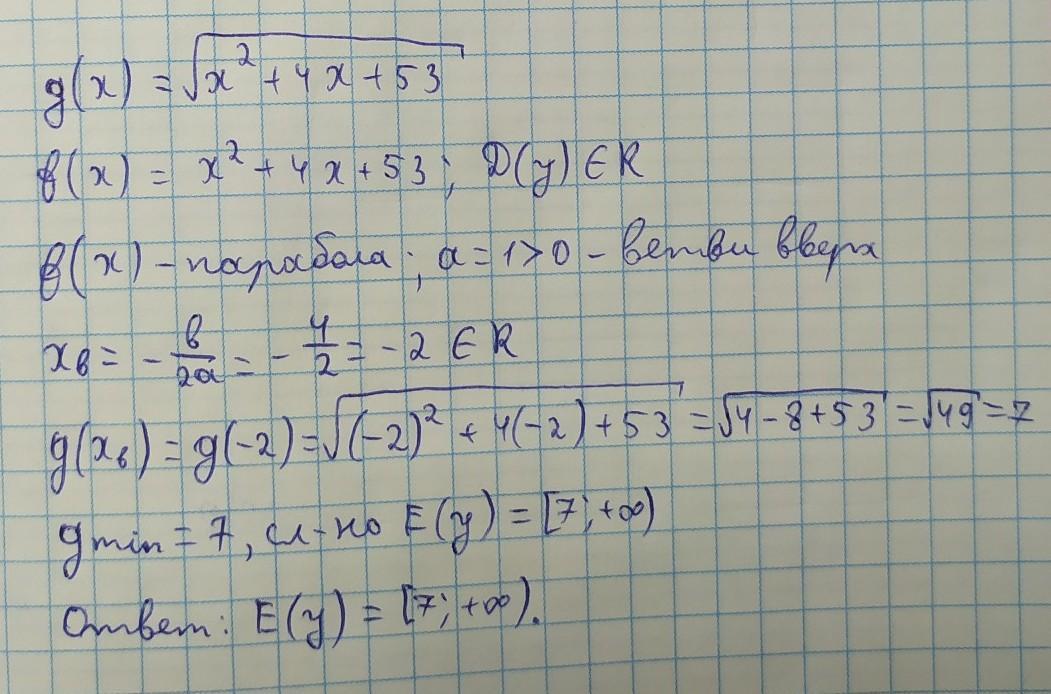 g(x) = √(x² + 4x + 53)
f(x) = x² + 4x + 53; D(y) ∈ R
f(x) – парабола; a = 1 > 0 – ветви вверх
xв = – в/2a = – 4/2 = – 2 ∈ R
g(xв) = g(–2) = √((–2)² + 4(–2) + 53) = √(4 – 8 + 53) = √49 = 7
gmin = 7, сл-но E(y) = [7; +∞)
Ответ: E(y) = [7; +∞).